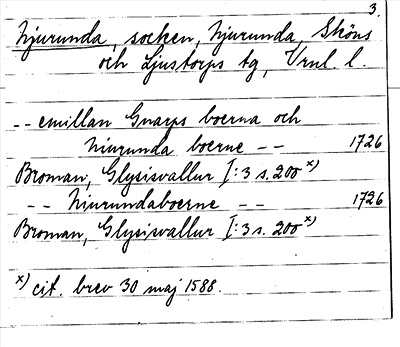 3.
Njurunda, socken, Njurunda, Sköns
och Ljustorps tg, Vrnl. l.
-- emillan Gnarps boerna och
Niurunda boerne -- 1726
Broman, Glysisvallur I:3 s. 200 x)
-- Niurundaboerne -- 1726
Broman, Glysisvallur I:3 s. 200 x)
x) cit. brev 30 maj 1588.